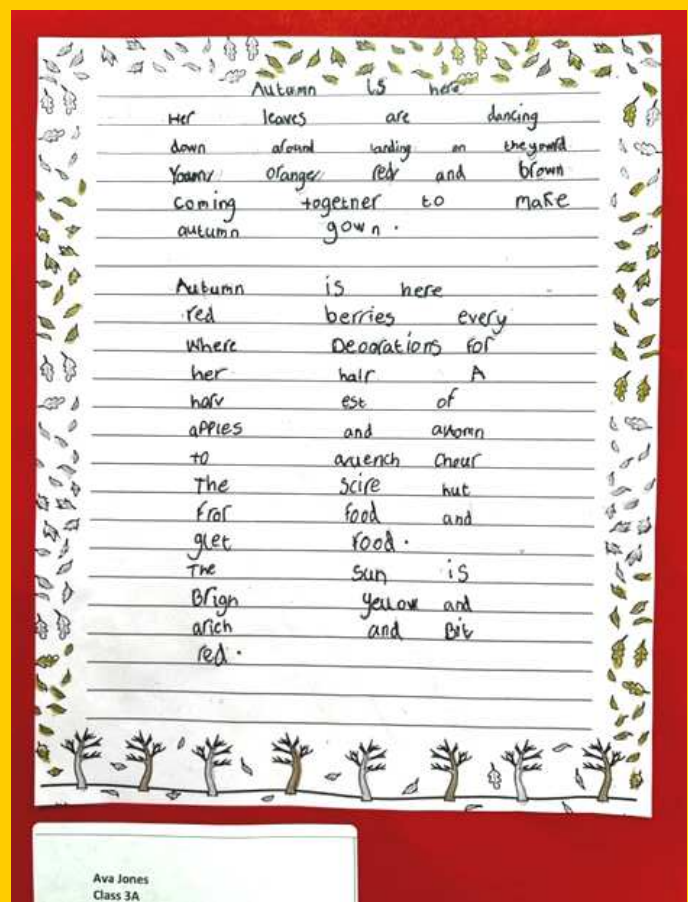 Autumn is here
Her leaves are dancing
down around landing on
orange red and brown
coming together to make
autumn gown.
Autumn is here
red berries every
where Decorations for
her hair A
harv est of
apples and
to
The hut
Fror food and
food.
The sun is
Brigh yellow and
and Bit
red.
Ava Jones
Class 3A